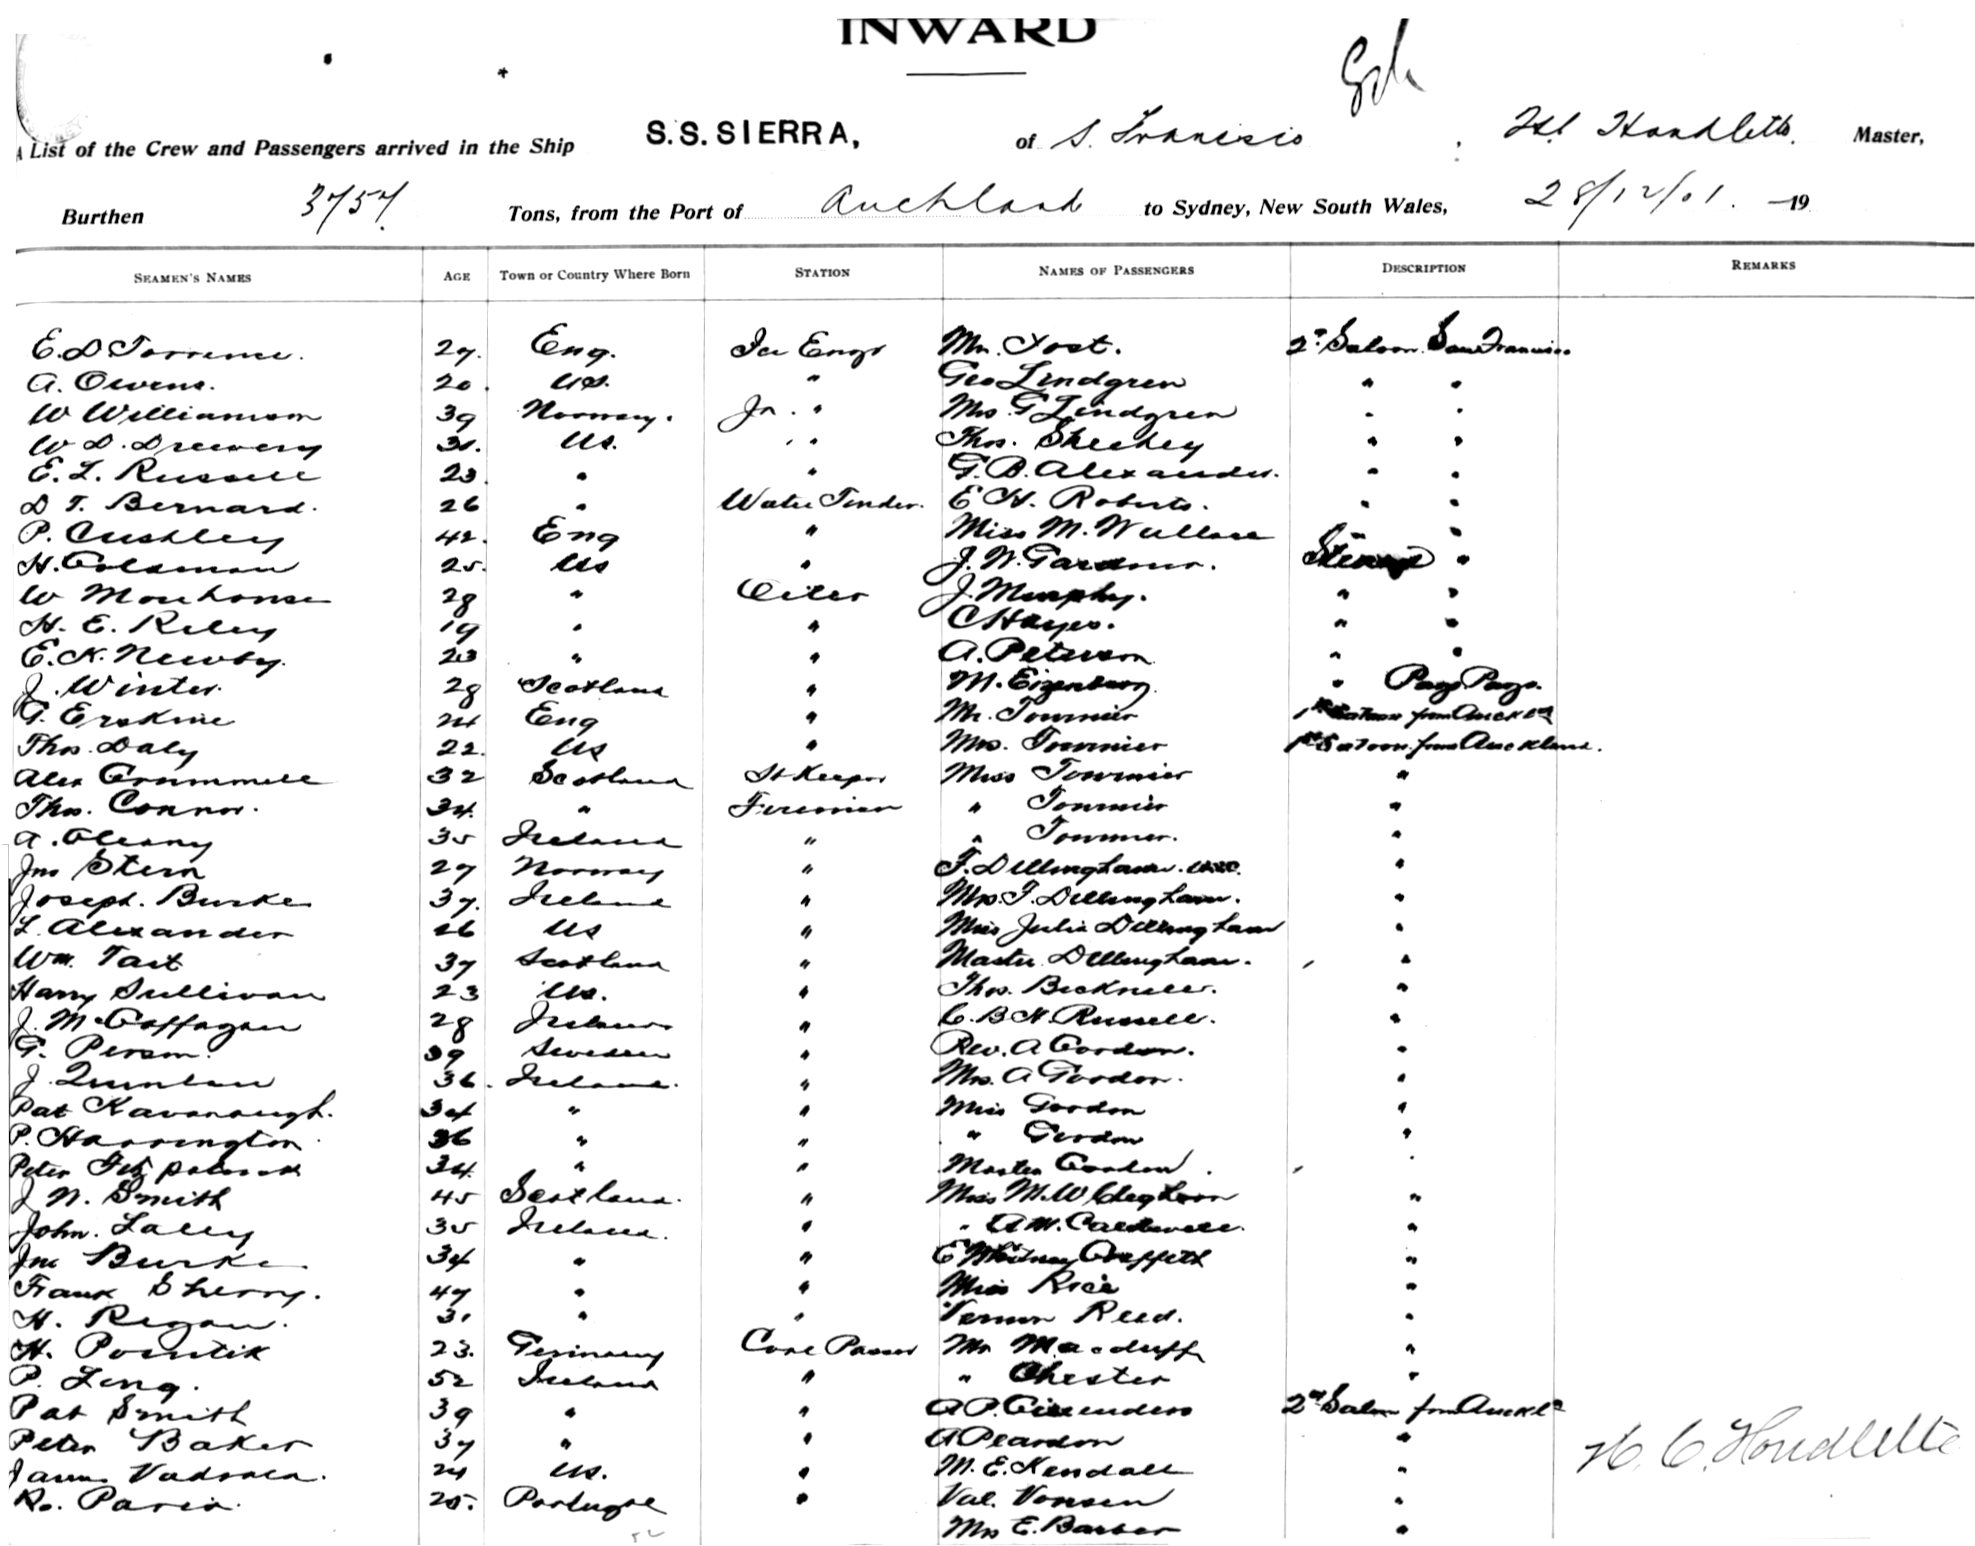 INWARD
A List of the Crew and Passengers arrived in the Ship S.S. SIERRA, of S. Francisco, Master,
Burthen 3757. Tons, from the Port of Auckland to Sydney, New South Wales, 28/12/01. 19
SEAMEN'S NAMES AGE Town or Country Where Born STATION NAMES OF PASSENGERS DESCRIPTION REMARKS
E. D Torrence. 27. Eng. Ice Engr Mr. Yost. 2" Saloon San Francisco.
A. Owens. 20. US. " Geo Lindgren " "
W Williamson 39 Norway. Jn. " Mrs. G Lindgren " "
W D. Drewery US. " Thos. Sheehey " "
E. L. Russell 23. " " G. B. Alexander. " "
D T. Bernard. 26 " Water Tender. E H. Roberts. " "
P. Cushley 42. Eng " Miss M. Wallace "
H. Coleman 25. US " J. W. Gardner. "
W Morehouse 28 " Oiler J. Murphy. " "
H. E. Riley 19 " " C Hayes. " "
E. K. Newby. 23 " " A. Peterson " "
J. Winter. 28 Scotland " M. Eizenberg " Pago Pago.
G. Erskine 24 Eng " Mr. Tournier 1st Saloon from Auckld
Thos. Daly 22. US " Mrs. Tournier 1st Saloon from Auckland.
Alex Crummell 32 Scotland St Keeper Miss Tournier "
Thos. Connor. 34. " Firemen " Tournier "
A. 35 Ireland " " Tournier. "
Jno Stern 27 Norway " F. Dillingham. "
Joseph. Burke 37. Ireland " Mrs. F. Dillingham. "
L. Alexander 26 US " Miss Julia Dillingham "
Wm. Tait 37 Scotland " Master Dillingham. "
Harry Sullivan 23 US. " Thos. Bicknell. "
J. McGaffagan 28 Ireland " C. B. H. Russell. "
G. Person. 39 Sweden " Rev. A Gordon. "
J. Quinlan 36. Ireland. " Mrs. A Gordon. "
Pat Kavanaugh. 34 " " Miss Gordon "
P. Harrington 36 " " " Gordon "
Peter Fitzpatrick 34. " " Master Gordon "
J. W. Smith 45 Scotland. " Miss M. W Cleghorn "
John. Lally 35 Ireland. " " A W. Caldwell. "
Jno Burke 34 " " E Whitney Griffith "
Frank Sherry. 47 " " Miss Rice "
H. Regan. 31 " " Vernon Reed. "
H. Pointik 23. Germany Coal Passer Mr Macduff "
P. Ling. 52 Ireland " " Chester "
Pat Smith 39 " " A P. 2nd Saloon from Auckld
Peter Baker 37 " " A Peardon "
24 US. " M. E. Kendall "
25. Portugal " Val. Vonsen "
Mrs E. Barber "
H. C. Houdlette